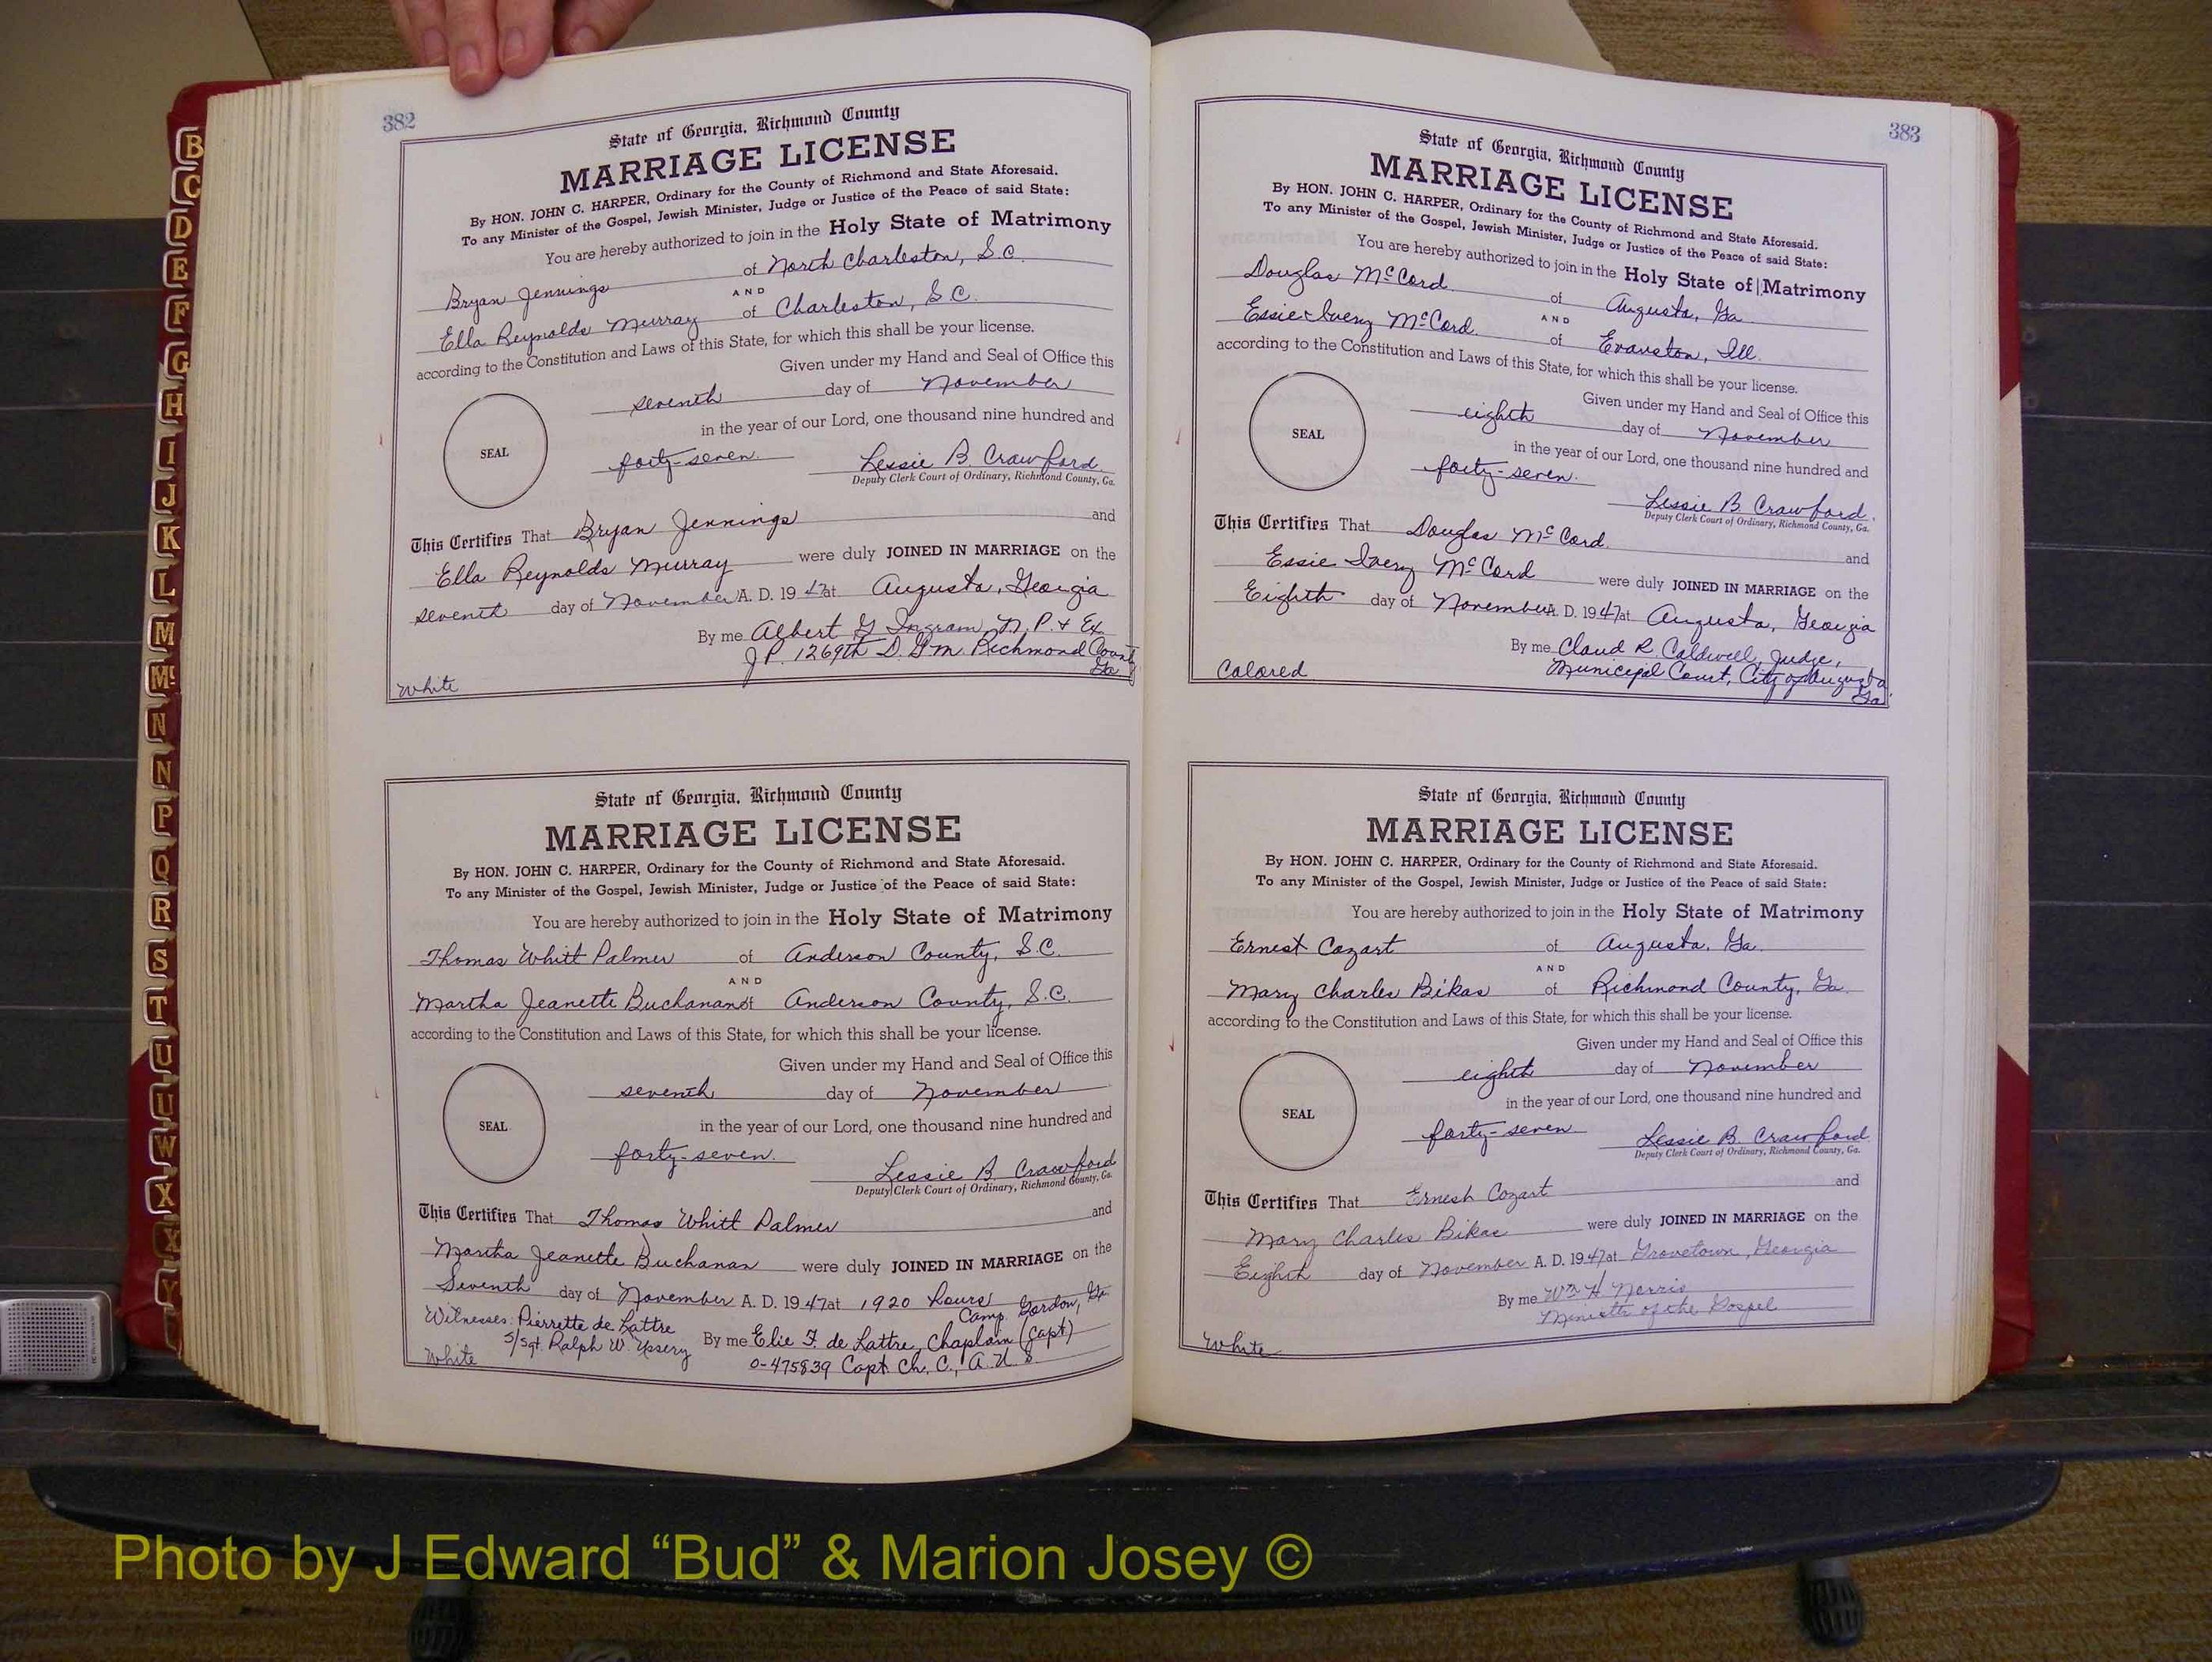 382
State of Georgia, Richmond County
MARRIAGE LICENSE
By HON. JOHN C. HARPER, Ordinary for the County of Richmond and State Aforesaid.
To any Minister of the Gospel, Jewish Minister, Judge or Justice of the Peace of said State:
You are hereby authorized to join in the Holy State of Matrimony
Bryan Jennings of North Charleston, S.C.
AND
Ella Reynolds Murray of Charleston, S.C.
according to the Constitution and Laws of this State, for which this shall be your license.
Given under my Hand and Seal of Office this
seventh day of November
in the year of our Lord, one thousand nine hundred and
SEAL
forty-seven. Lessie B. Crawford
Deputy Clerk Court of Ordinary, Richmond County, Ga.
This Certifies That Bryan Jennings and
Ella Reynolds Murray were duly JOINED IN MARRIAGE on the
seventh day of November A. D. 1947 at Augusta, Georgia
By me Albert G Ingram, N.P. & Ex.
J P. 1269th D. G M. Richmond County
Ga
White
State of Georgia, Richmond County
MARRIAGE LICENSE
By HON. JOHN C. HARPER, Ordinary for the County of Richmond and State Aforesaid.
To any Minister of the Gospel, Jewish Minister, Judge or Justice of the Peace of said State:
You are hereby authorized to join in the Holy State of Matrimony
Thomas Whitt Palmer of Anderson County, S.C.
AND
Martha Jeanette Buchanan of Anderson County, S.C.
according to the Constitution and Laws of this State, for which this shall be your license.
Given under my Hand and Seal of Office this
seventh day of November
in the year of our Lord, one thousand nine hundred and
SEAL
forty-seven. Lessie B. Crawford
Deputy Clerk Court of Ordinary, Richmond County, Ga.
This Certifies That Thomas Whitt Palmer and
Martha Jeanette Buchanan were duly JOINED IN MARRIAGE on the
Seventh day of November A. D. 1947 at 1920 hours
Camp Gordon, Ga.
Witnesses: Pierrette de Lattre
By me Elie F. de Lattre, Chaplain (Capt)
S/Sgt. Ralph W.
O-475839 Capt. Ch. C., A.U.S.
White
383
State of Georgia, Richmond County
MARRIAGE LICENSE
By HON. JOHN C. HARPER, Ordinary for the County of Richmond and State Aforesaid.
To any Minister of the Gospel, Jewish Minister, Judge or Justice of the Peace of said State:
You are hereby authorized to join in the Holy State of Matrimony
Douglas McCord of Augusta, Ga
AND
Essie Inez McCord of Evanston, Ill.
according to the Constitution and Laws of this State, for which this shall be your license.
Given under my Hand and Seal of Office this
eighth day of November
in the year of our Lord, one thousand nine hundred and
SEAL
forty-seven.
Lessie B. Crawford
Deputy Clerk Court of Ordinary, Richmond County, Ga.
This Certifies That Douglas McCord and
Essie Inez McCord were duly JOINED IN MARRIAGE on the
Eighth day of November A. D. 1947 at Augusta, Georgia
By me Claud R. Caldwell, Judge,
Municipal Court, City of Augusta
Ga.
Colored
State of Georgia, Richmond County
MARRIAGE LICENSE
By HON. JOHN C. HARPER, Ordinary for the County of Richmond and State Aforesaid.
To any Minister of the Gospel, Jewish Minister, Judge or Justice of the Peace of said State:
You are hereby authorized to join in the Holy State of Matrimony
Ernest Cozart of Augusta, Ga.
AND
Mary Charles Bikas of Richmond County, Ga.
according to the Constitution and Laws of this State, for which this shall be your license.
Given under my Hand and Seal of Office this
eighth day of November
in the year of our Lord, one thousand nine hundred and
SEAL
forty-seven. Lessie B. Crawford
Deputy Clerk Court of Ordinary, Richmond County, Ga.
This Certifies That Ernest Cozart and
Mary Charles Bikas were duly JOINED IN MARRIAGE on the
Eighth day of November A. D. 1947 at Grovetown, Georgia
By me Wm H Norris
Minister of the Gospel
White
B
C
D
E
F
G
H
I
J
K
L
M
Mc
N
N
P
Q
R
S
T
U
U
W
X
X
Y
Photo by J Edward “Bud” & Marion Josey ©